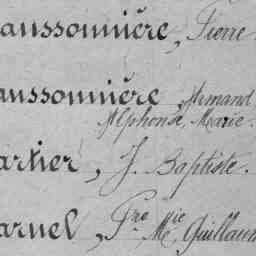 aussonnière, Pierre
aussonnière, Armand,
Alphonse, Marie.
artier, J. Baptiste.
arnel, Pre Mie Guillaum